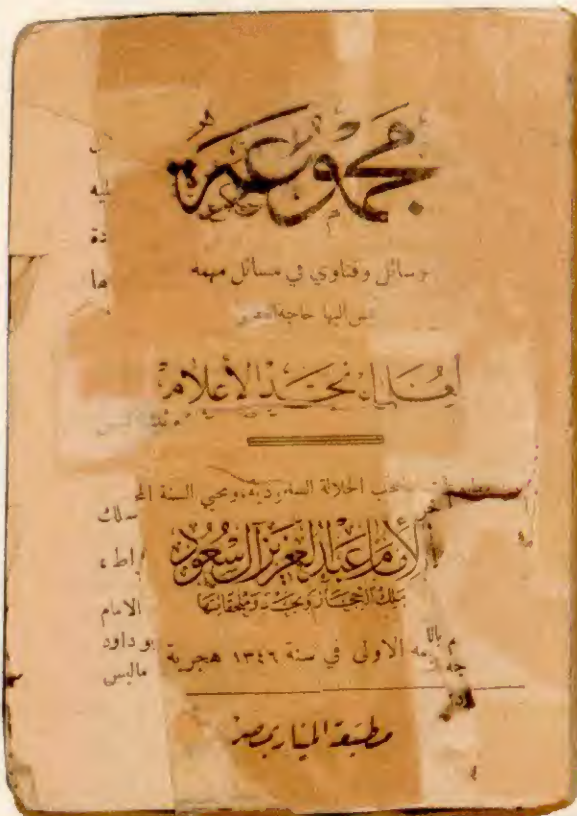 مجموعة
رسائل وفتاوي في مسائل مهمة
تمس اليها حاجة العصر
لعلماء نجد الأعلام
صاحب الجلالة السعودية، ومحيي السنة المح
الأمام عبد العزيز آل سعود
ملك الحجاز ونجد وملحقاتها
الاولى في سنة ١٣٤٦ هجرية
مطبعة المنار بمصر
ليه
دة
ما
سلك
راط،
الامام
بو داود
ماليس